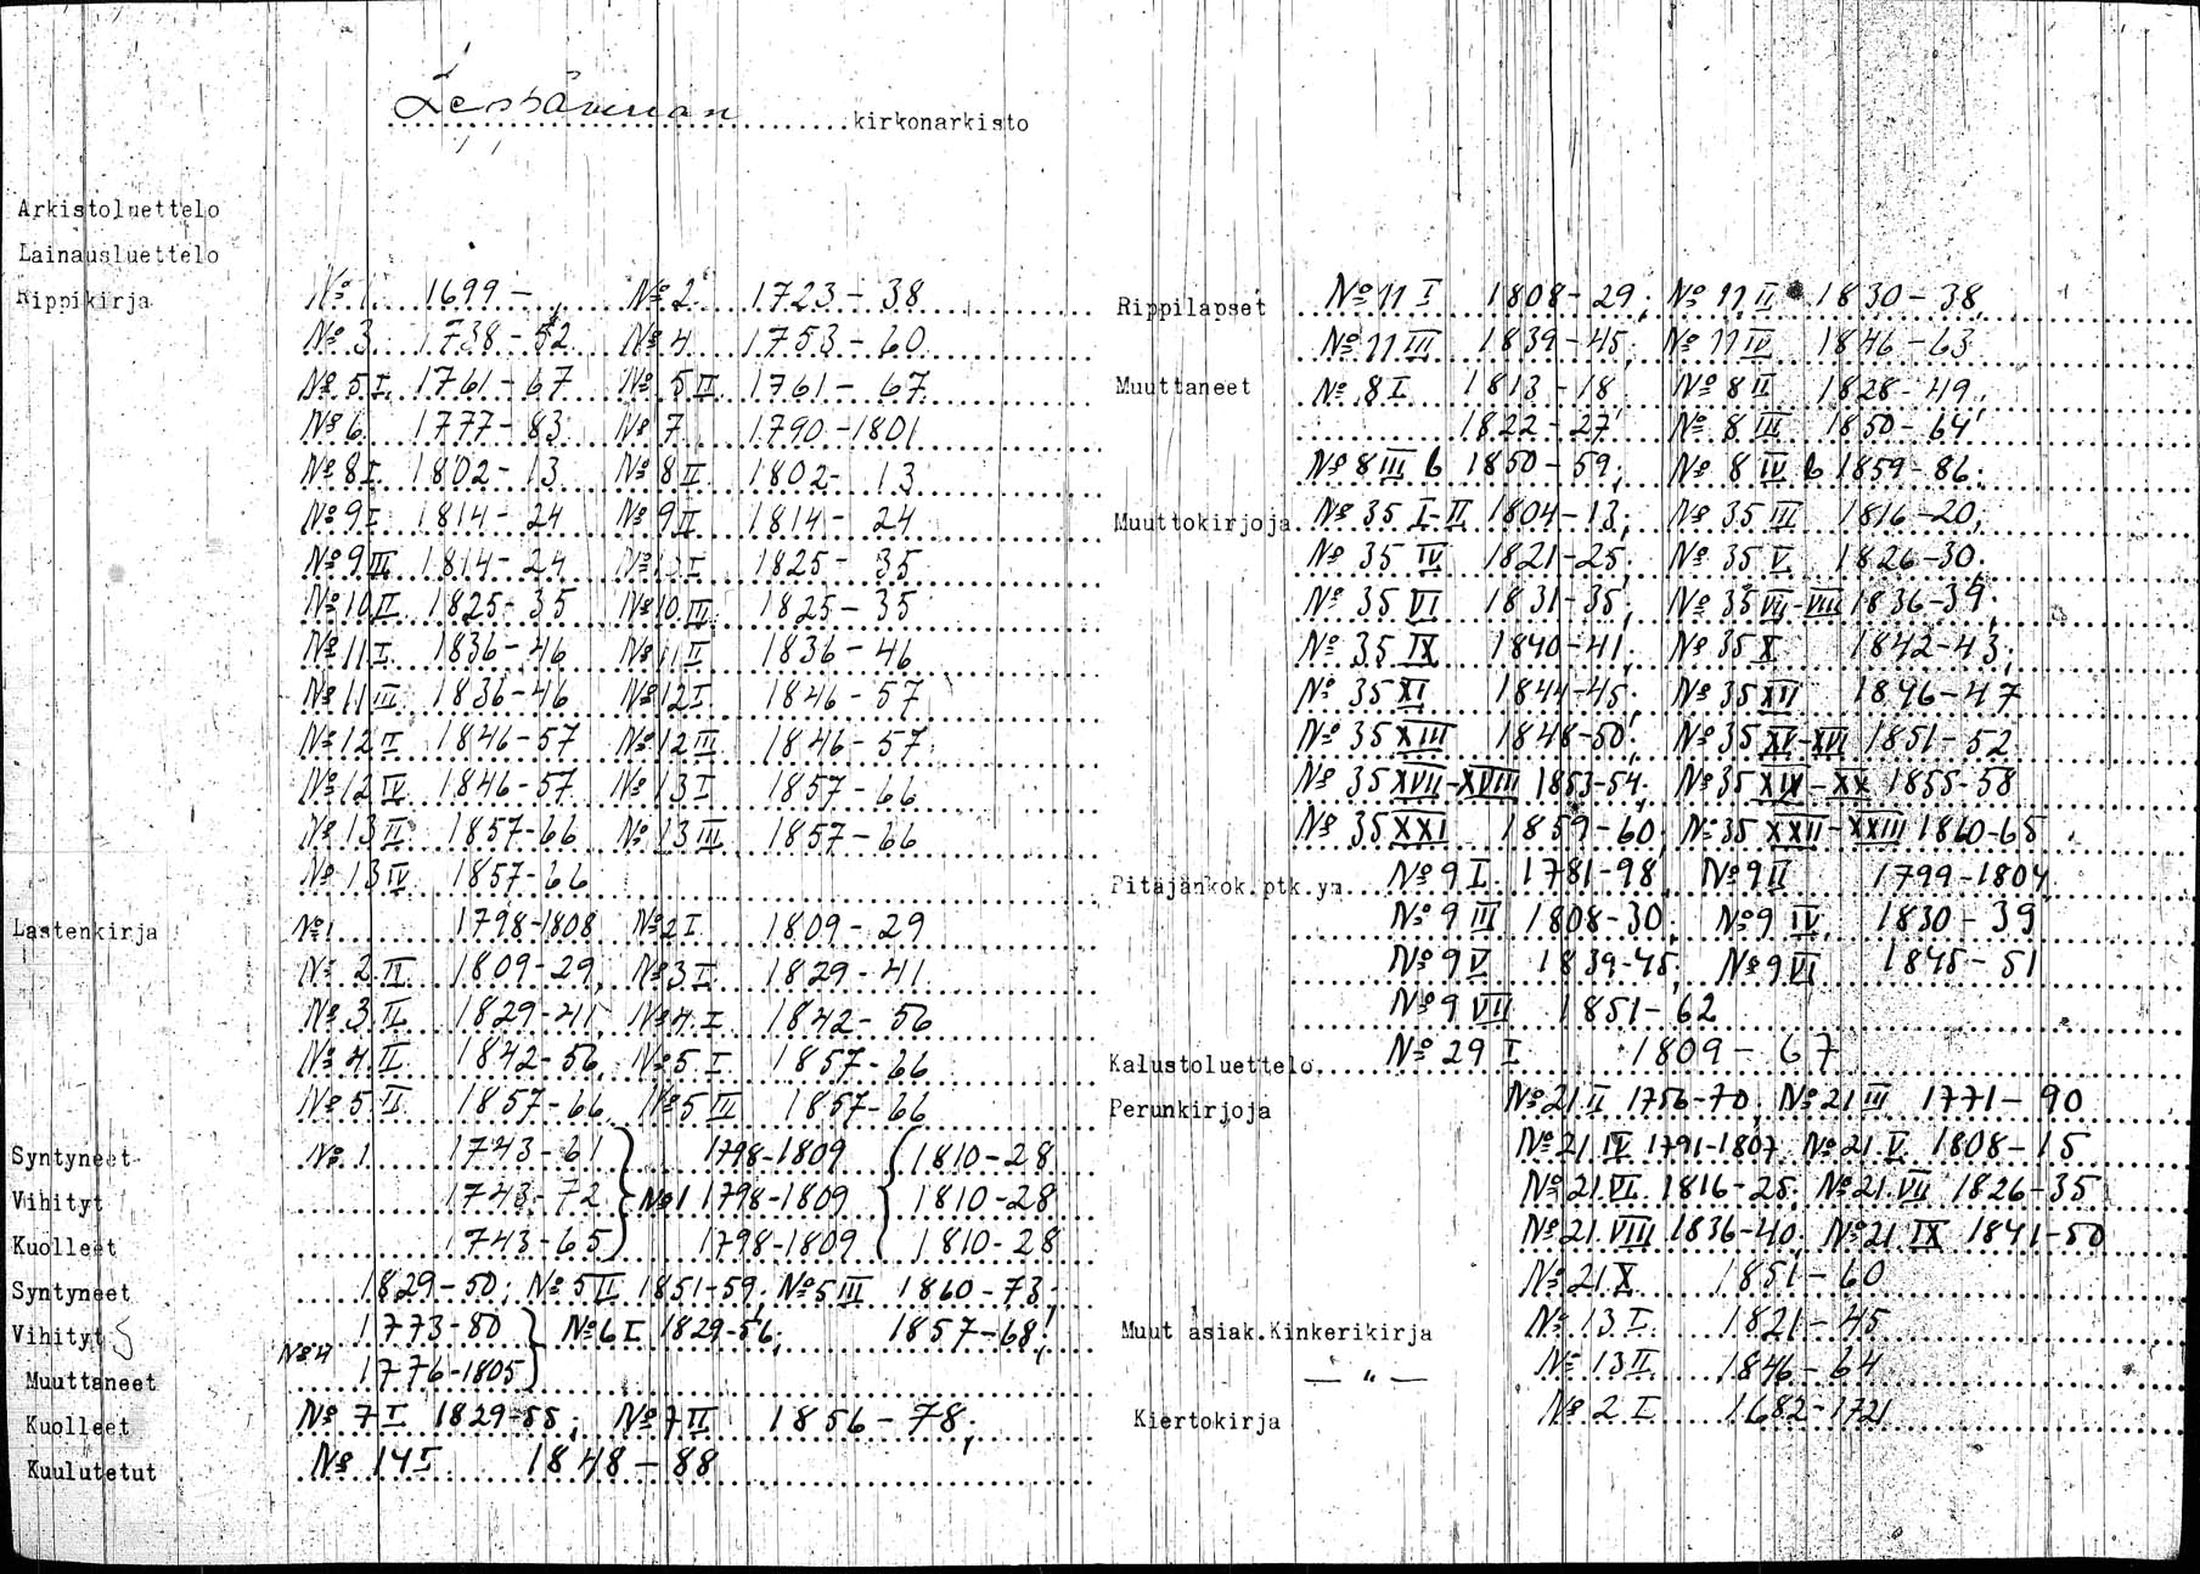 kirkonarkisto
Arkistoluettelo
Lainausluettelo
Rippikirja № 1. 1699- , № 2. 1723-38
№ 3 1738-52 № 4 1753-60
№ 5 I. 1761-67 № 5 II 1761-67
№ 6 1777-83 № 7 1790-1801
№ 8 I. 1802-13 № 8 II 1802-13
№ 9 I 1814-24 № 9 II 1814-24
№ 9 III 1814-24 № 10 I 1825-35
№ 10 II 1825-35 № 10 III 1825-35
№ 11 I. 1836-46 № 11 II 1836-46
№ 11 III 1836-46 № 12 I 1846-57
№ 12 II 1846-57 № 12 III 1846-57
№ 12 IV 1846-57 № 13 I 1857-66
№ 13 II 1857-66 № 13 III 1857-66
№ 13 IV 1857-66
Lastenkirja № 1 1798-1808 № 2 I 1809-29
№ 2 II 1809-29, № 3 I 1829-41
№ 3 II 1829-41, № 4 I 1842-56
№ 4 II 1842-56, № 5 I 1857-66
№ 5 II 1857-66, № 5 III 1857-66
Syntyneet № 1 1743-61 } 1798-1809 { 1810-28
Vihityt 1743-72 } № 1 1798-1809 { 1810-28
Kuolleet 1743-65 } 1798-1809 { 1810-28
Syntyneet 1829-50; № 5 II 1851-59; № 5 III 1860-73;
Vihityt 1773-80 } № 6 I 1829-56; 1857-68;
№ 4
Muuttaneet 1776-1805 }
Kuolleet № 7 I 1829-55; № 7 II 1856-78;
Kuulutetut № 14 I 1848-88
Rippilapset № 11 I 1808-29; № 11 II 1830-38,
№ 11 III 1839-45; № 11 IV 1846-63
Muuttaneet № 8 I 1813-18 № 8 II 1828-49;
1822-27; № 8 III 1850-64
№ 8 III b 1850-59; № 8 IV b 1859-86;
Muuttokirjoja № 35 I-II 1804-13; № 35 III 1816-20,
№ 35 IV 1821-25; № 35 V 1826-30.
№ 35 VI 1831-35; № 35 VII-VIII 1836-39;
№ 35 IX 1840-41; № 35 X 1842-43;
№ 35 XI 1844-45; № 35 XII 1846-47
№ 35 XIII 1848-50; № 35 XV-XVI 1851-52
№ 35 XVII-XVIII 1853-54; № 35 XIX-XX 1855-58
№ 35 XXI 1859-60; № 35 XXII-XXIII 1860-65
Pitäjänkok.ptk.ym № 9 I 1781-98, № 9 II 1799-1804
№ 9 III 1808-30; № 9 IV 1830-39
№ 9 V 1839-45; № 9 VI 1845-51
№ 9 VII 1851-62
Kalustoluettelo № 29 I 1809-67
Perunkirjoja № 21 II 1756-70; № 21 III 1771-90
№ 21 IV 1791-1807, № 21 V 1808-15
№ 21 VI 1816-25; № 21 VII 1826-35
№ 21 VIII 1836-40; № 21 IX 1841-50
№ 21 X 1851-60
Muut asiak.Kinkerikirja № 13 I. 1821-45
— " — № 13 II 1846-64
Kiertokirja № 2 I 1682-1721